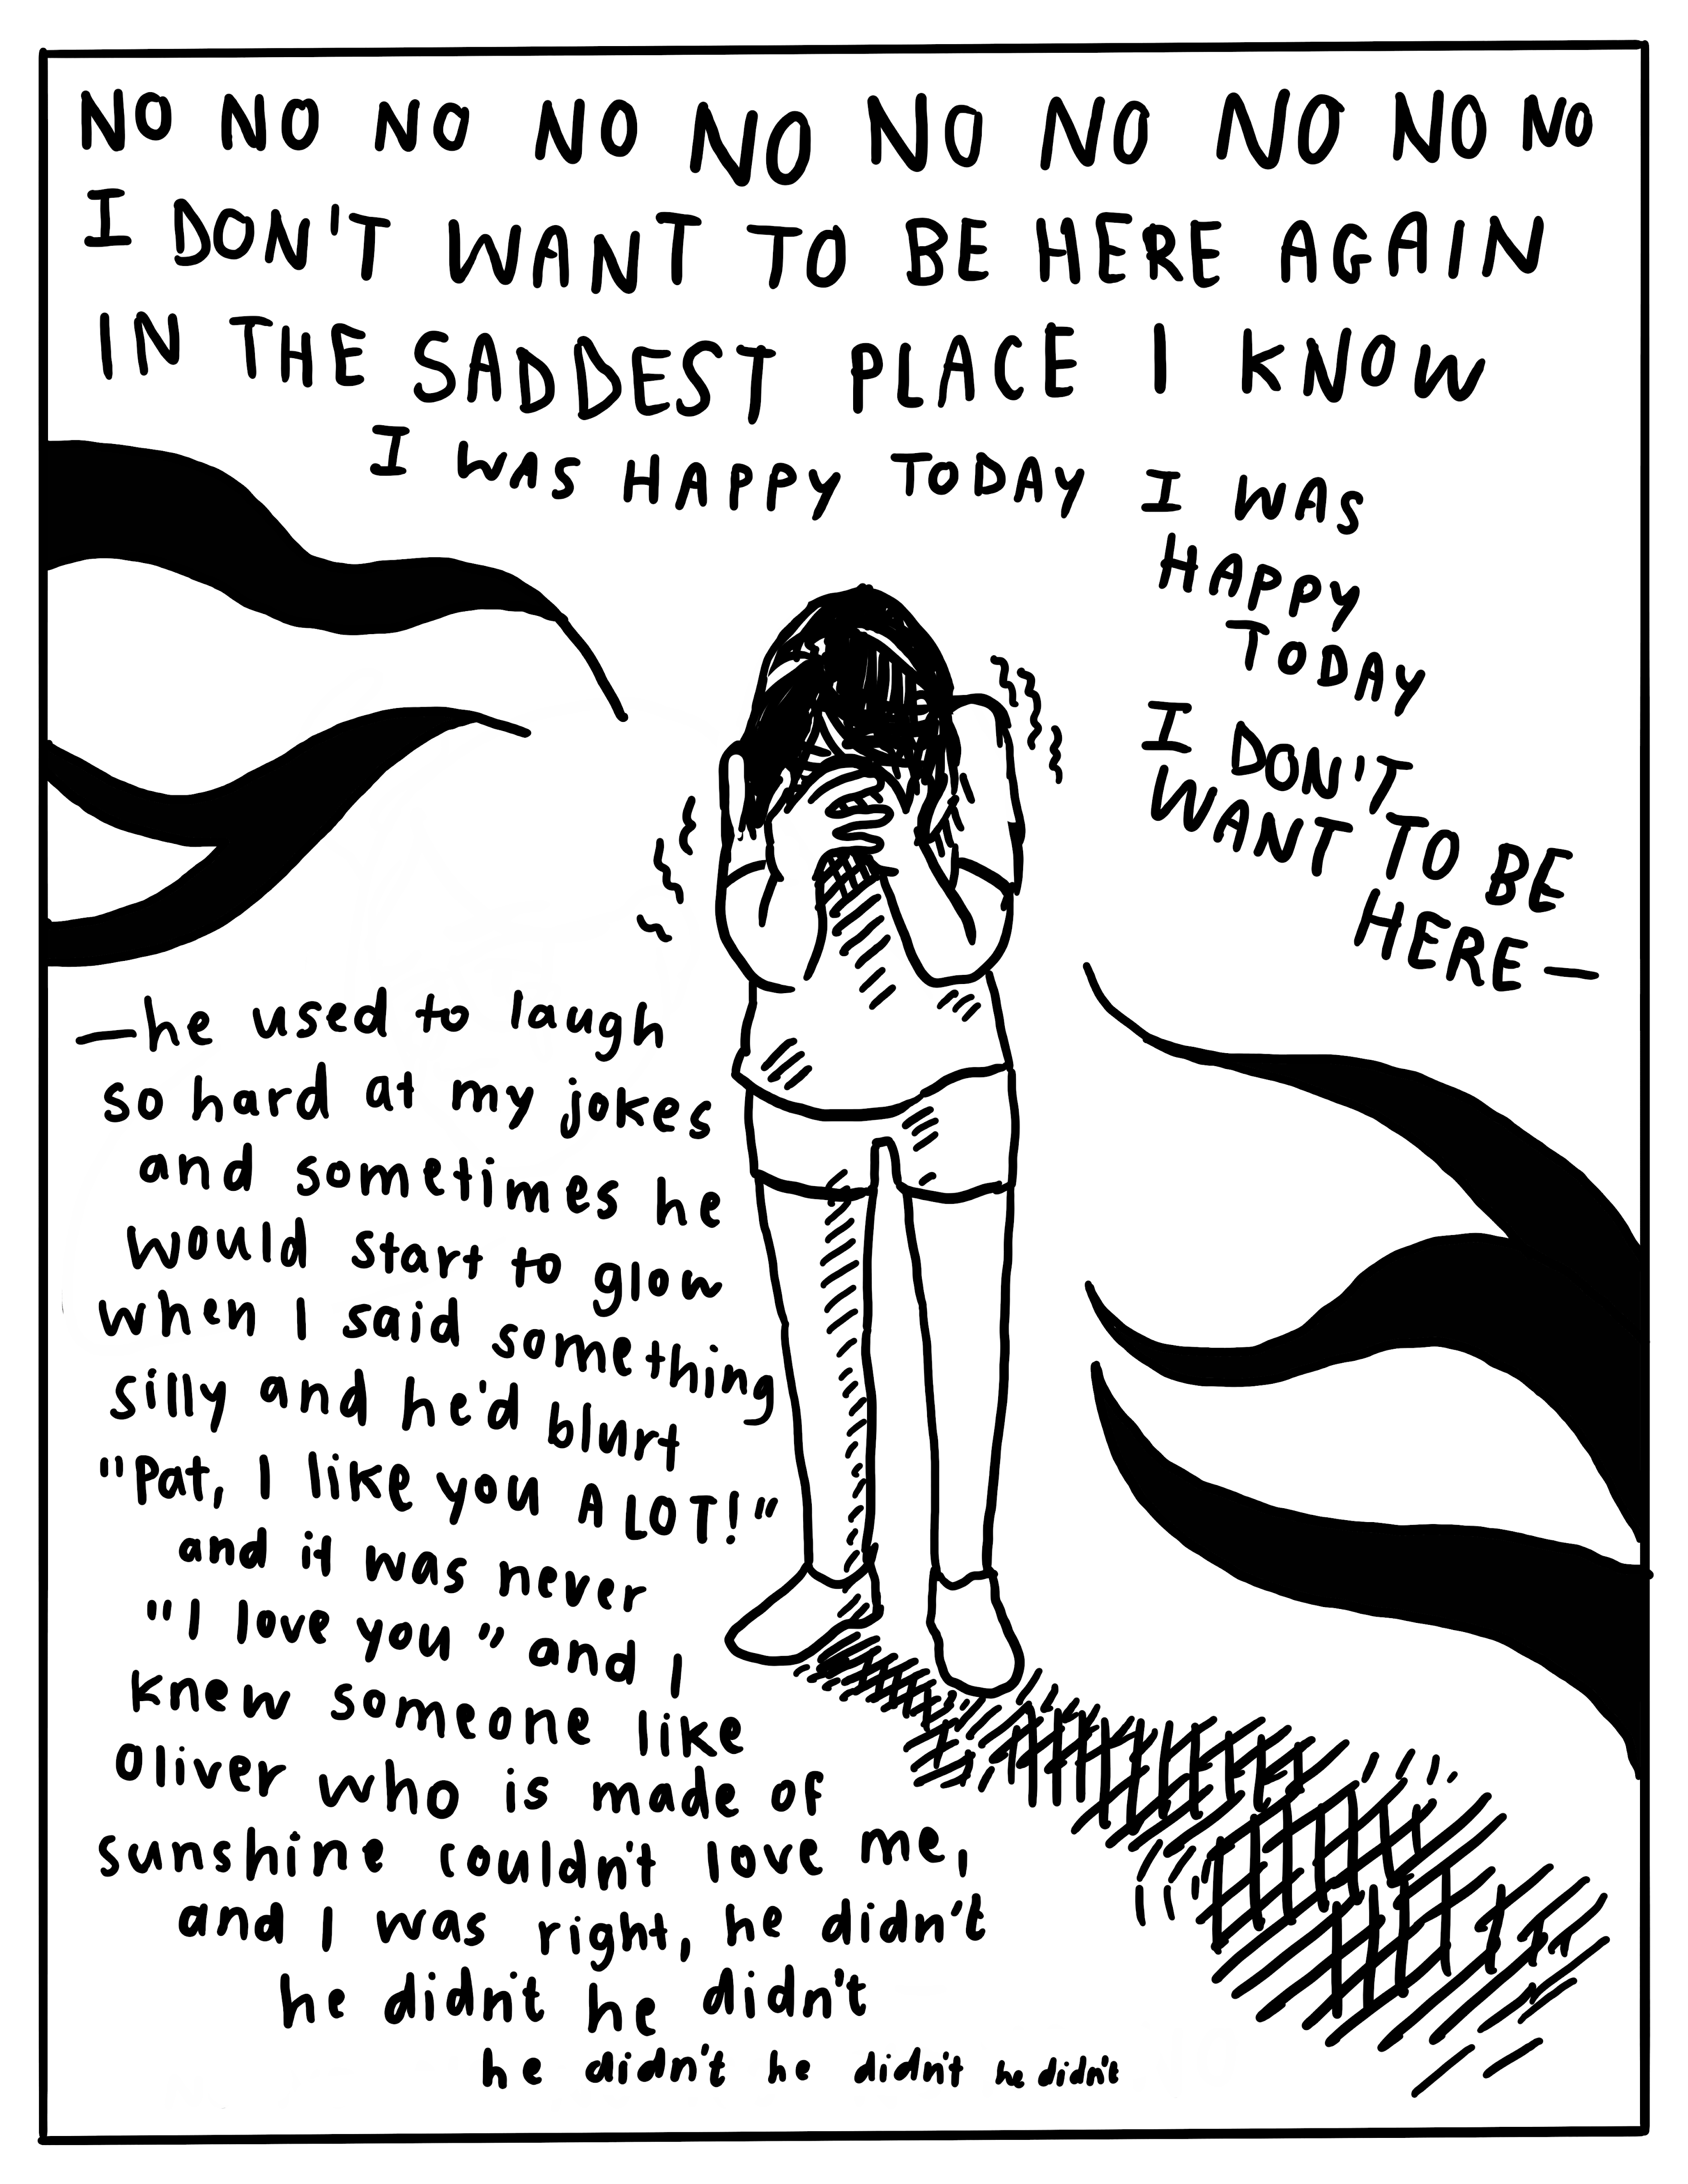 NO NO NO NO NO NO NO NO NO NO
I DON'T WANT TO BE HERE AGAIN
IN THE SADDEST PLACE I KNOW
I WAS HAPPY TODAY
I WAS
HAPPY
TODAY
I DON'T
WANT TO BE
HERE—
—he used to laugh
so hard at my jokes
and sometimes he
would start to glow
when I said something
silly and he'd blurt
"Pat, I like you A LOT!"
and it was never
"I love you" and I
knew someone like
Oliver who is made of
sunshine couldn't love me,
and I was right, he didn't
he didn't he didn't
he didn't he didn't he didn't